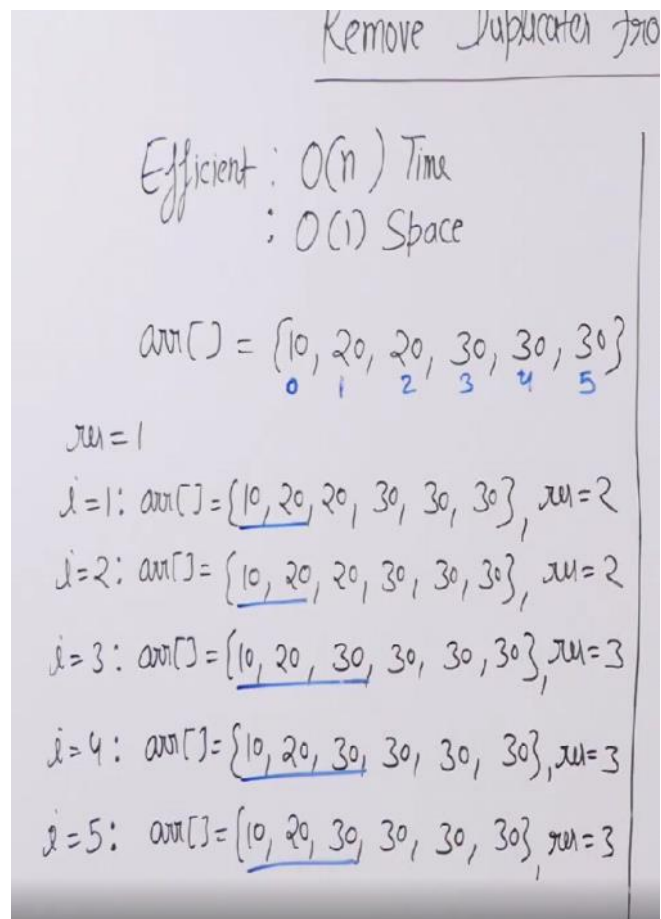 Remove Duplicates fro
Efficient : O(n) Time
: O(1) Space
arr[] = {10, 20, 20, 30, 30, 30}
0 1 2 3 4 5
res=1
i=1: arr[]={10, 20, 20, 30, 30, 30}, res=2
i=2: arr[]= {10, 20, 20, 30, 30, 30}, res=2
i=3: arr[]={10, 20, 30, 30, 30, 30}, res=3
i=4: arr[]={10, 20, 30, 30, 30, 30}, res=3
i=5: arr[]={10, 20, 30, 30, 30, 30}, res=3